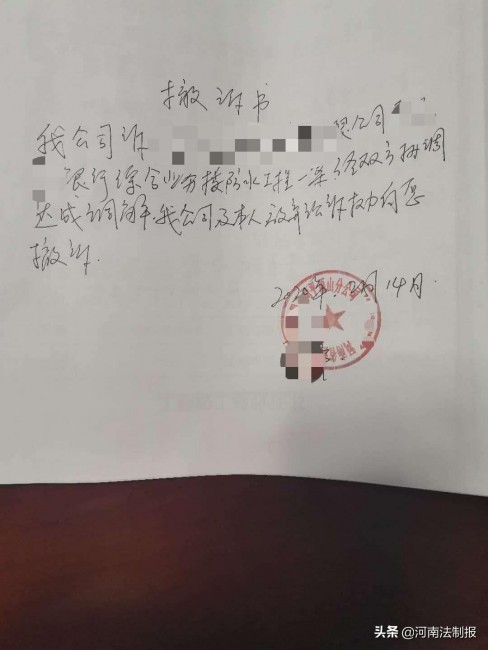 撤诉书
我公司诉 总公司
银行综合业务楼防水工程一案经双方协调
达成調解.我公司及本人放弃公诉权力自愿
撤诉.
2020年.2月14日.
头条 @河南法制报